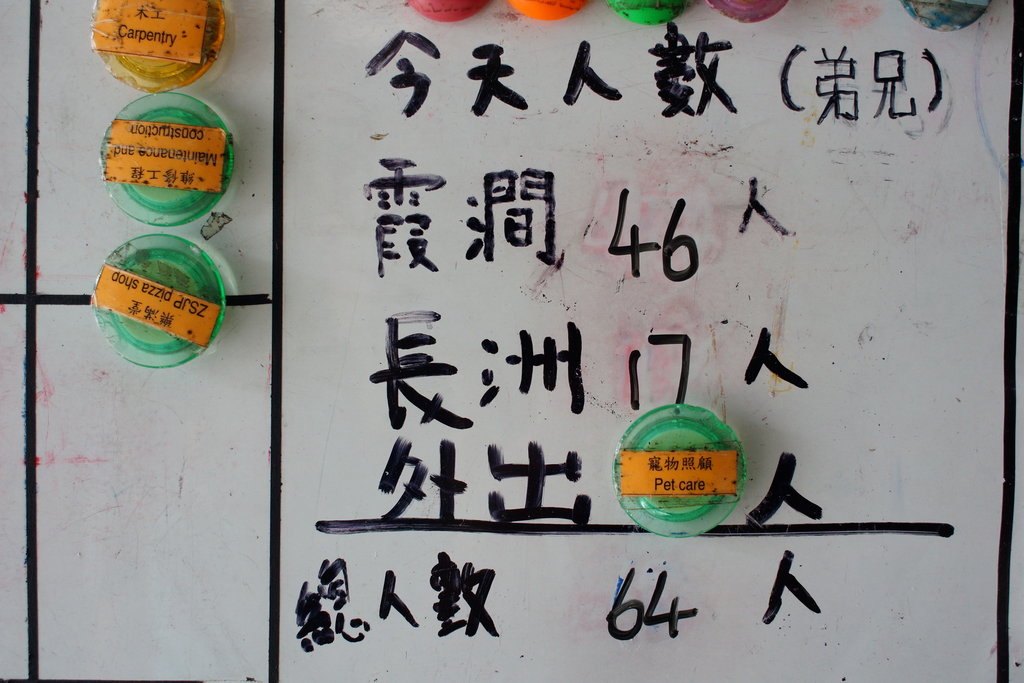 木工
Carpentry
維修工程
Maintenance and
construction
樂滿堂
ZSJP pizza shop
今天人數(弟兄)
霞澗 46 人
長洲 17 人
外出 人
寵物照顧
Pet care
總人數 64 人